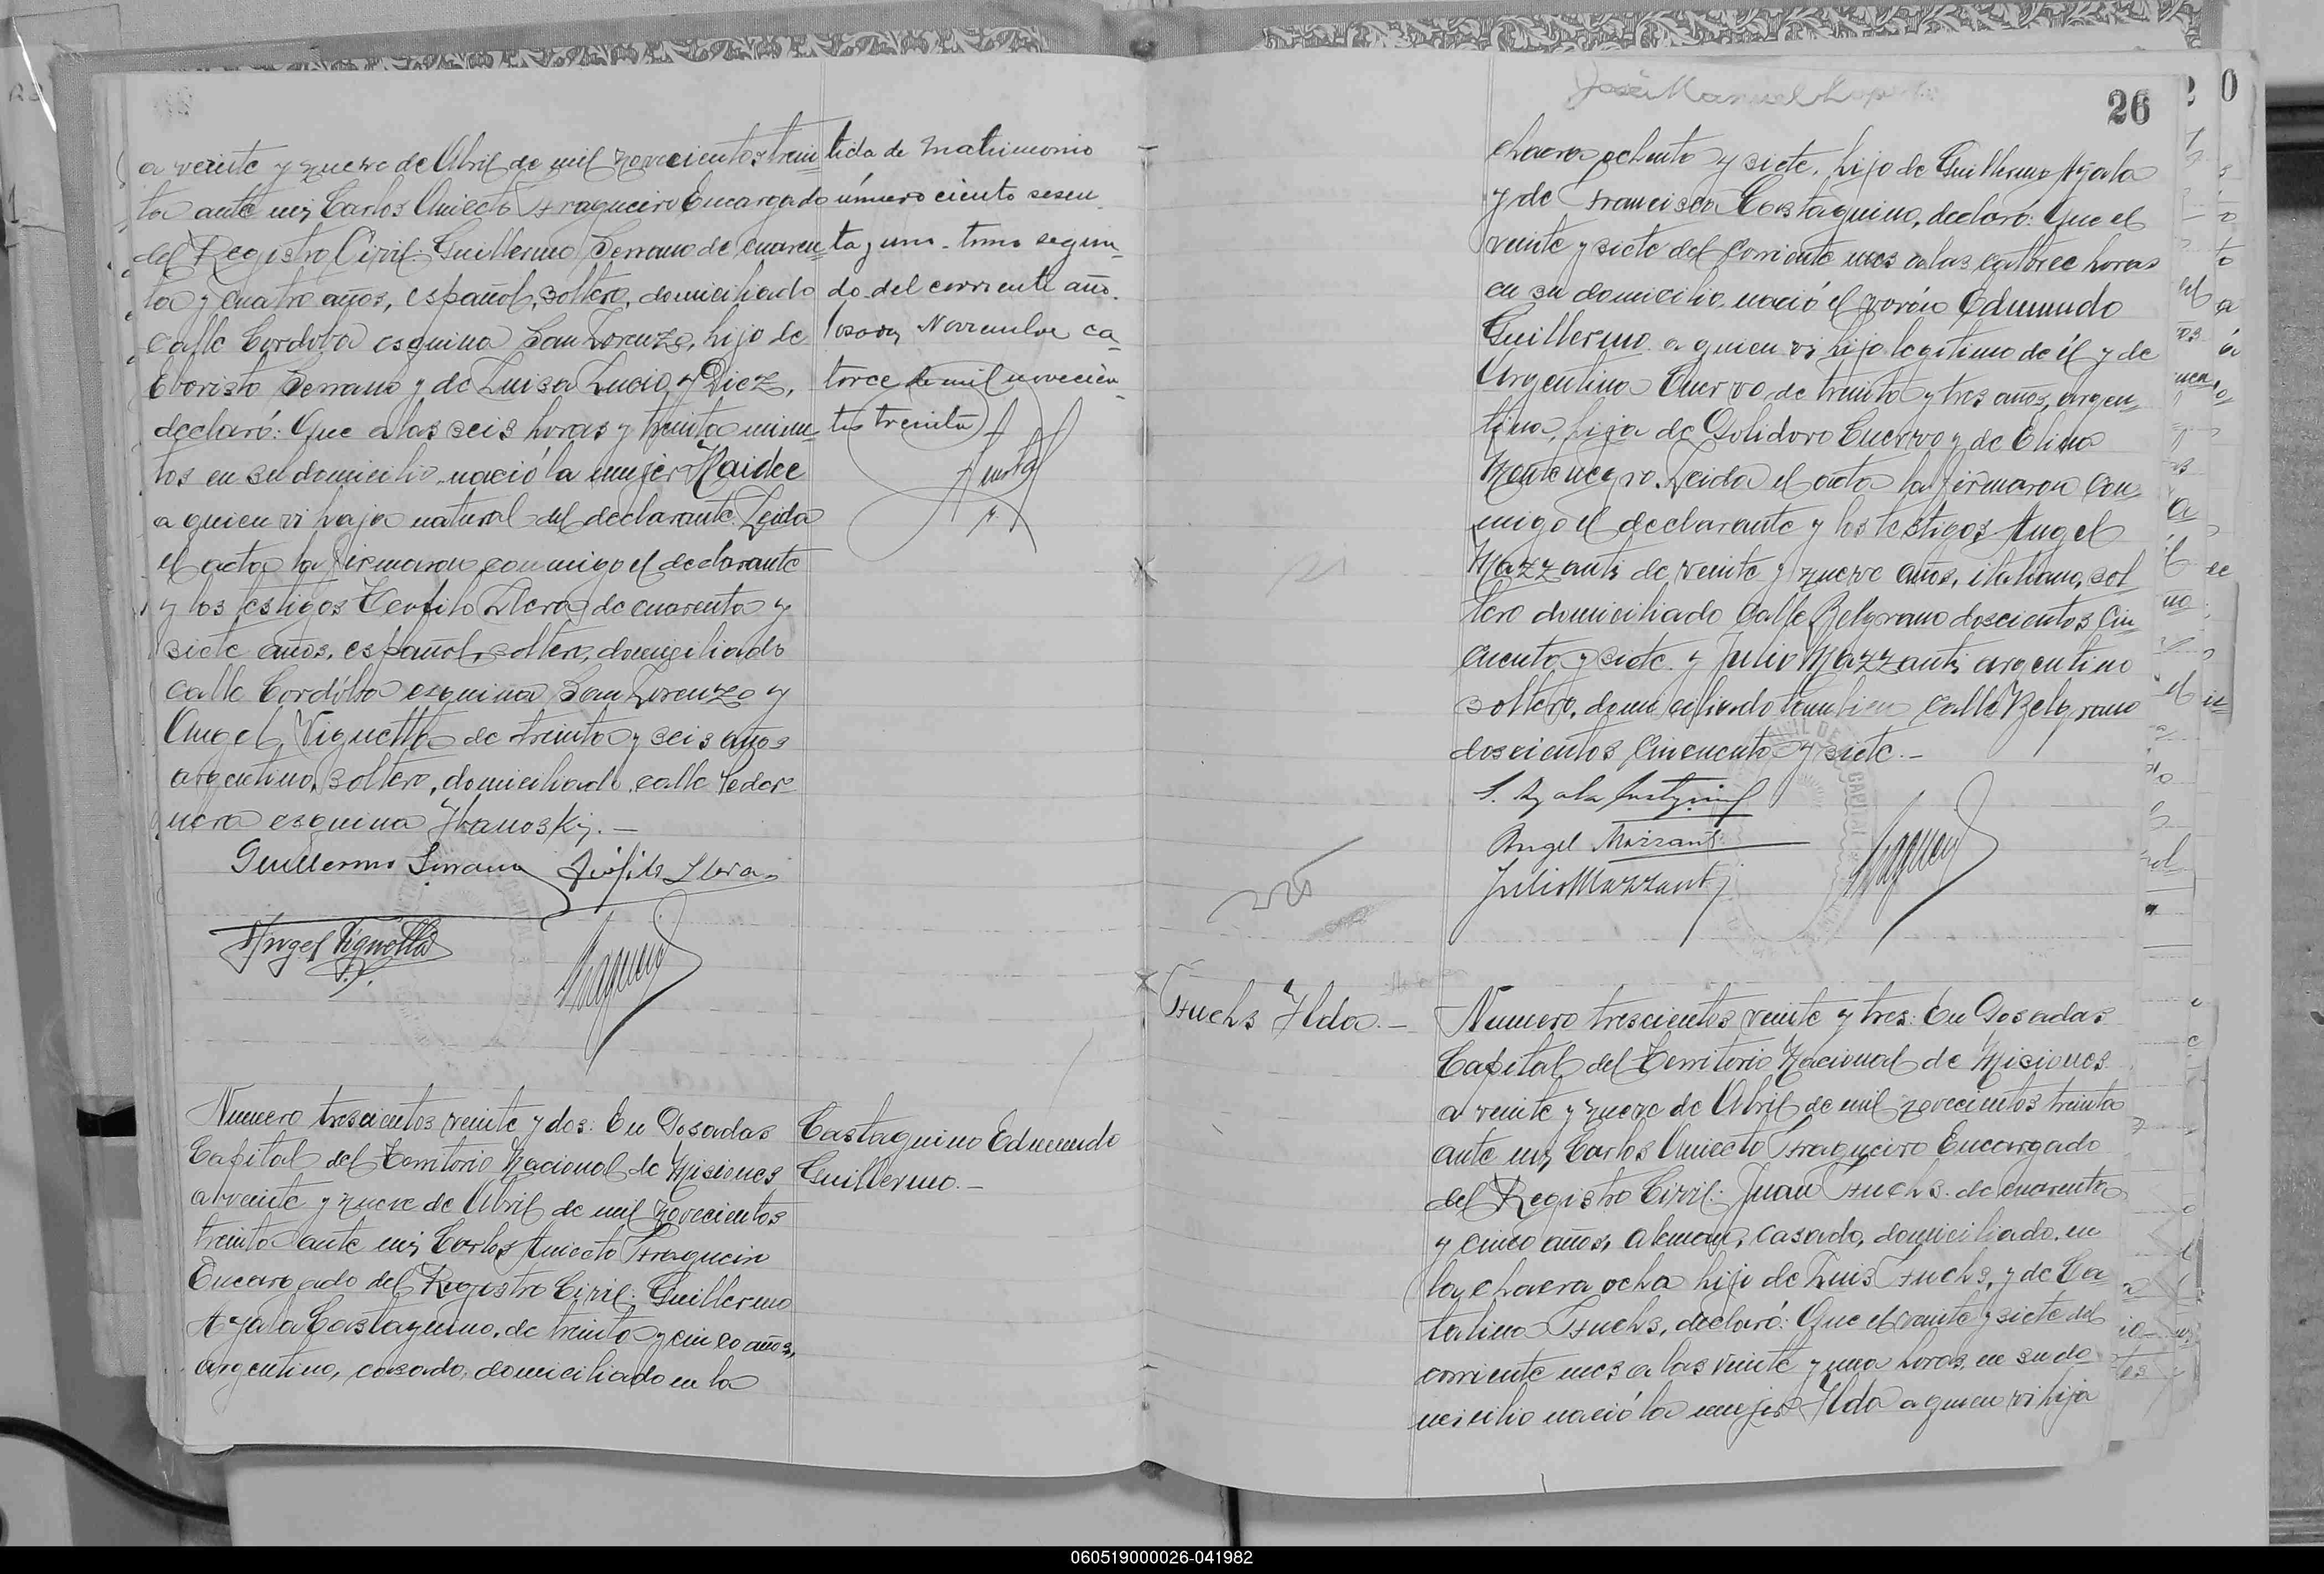 a veinte y nueve de Abril de mil novecientos trein
ta ante mi, Carlos Aniceto Fragueiro Encargado
del Registro Civil: Guillermo Serrano de cuaren
ta y cuatro años, español, soltero, domiciliado
calle Cordoba esquina San Lorenzo, hijo de
Eboristo Serrano y de Luisa Lucio y Diez,
declaró: Que a las seis horas y treinta minu
tos en su domicilio nació la mujer Haidee
a quien vi hija natural del declarante. Leida
el acta la firmaron conmigo el declarante
y los testigos Teofilo Llera de cuarenta y
siete años, español, soltero, domiciliado
calle Cordoba esquina San Lorenzo y
Angel Vignolla de treinta y seis años
argentino, soltero, domiciliado calle Peder
nera esquina Ihanoski.-
Guillermo Serrano Teofilo Llera
Angel Vignolla
tida de Matrimonio
número ciento sesen
ta y uno - tomo segun
do del corriente año.
Posadas Noviembre ca
torce de mil novecien
tos treinta
Numero trescientos veinte y dos: En Posadas
Capital del Territorio Nacional de Misiones
a veinte y nueve de Abril de mil novecientos
treinta ante mi, Carlos Aniceto Fragueiro
Encargado del Registro Civil: Guillermo
Ayala Castagnino, de treinta y cinco años,
argentino, casado, domiciliado en la
Castagnino Edmundo
Guillermo.-
José Manuel
26
chacra ochenta y siete, hijo de Guillermo Ayala
y de Francisca Costagnino, declaró: Que el
veinte y siete del corriente mes a las catorce horas
en su domicilio, nació el varón Edmundo
Guillermo a quien vi hijo legitimo de él y de
Argentina Cuervo de treinta y tres años, argen
tina, hija de Polidoro Cuervo y de Elina
Montenegro. Leida el acta la firmaron con
migo el declarante y los testigos Angel
Mazzanti de veinte y nueve años, italiano, sol
tero domiciliado calle Belgrano doscientos cin
cuenta y siete y Julio Mazzanti argentino
soltero, domiciliado tambien calle Belgrano
doscientos cincuenta y siete.-
Angel Mazzanti
Julio Mazzanti
Fuchs Ilda.-
Numero trescientos veinte y tres: En Posadas
Capital del Territorio Nacional de Misiones
a veinte y nueve de Abril de mil novecientos treinta
ante mi, Carlos Aniceto Fragueiro Encargado
del Registro Civil: Juan Fuchs de cuarenta
y cinco años, aleman, casado, domiciliado en
la chacra ocho hijo de Luis Fuchs, y de Ca
talina Fuchs, declaró: Que el veinte y siete del
corriente mes a las veinte y una horas en su do
micilio nació la mujer Ilda a quien vi hija
060519000026-041982